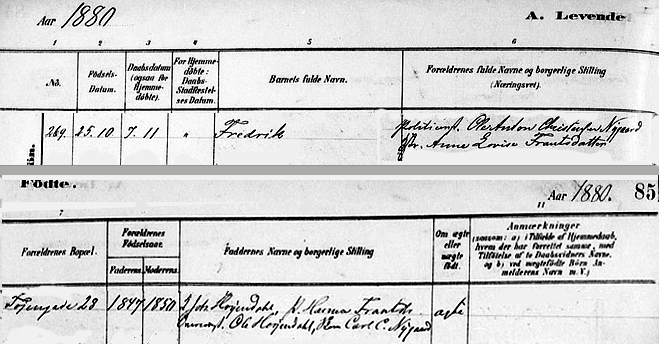 Aar 1880
A. Levende
1 2 3 4 5 6
No.
Födsels-
Datum.
Daabsdatum
(ogsaa for
Hjemme-
döbte).
Far Hjemme-
döbte:
Daabs-
Stadfæstel-
ses Datum.
Barnets fulde Navn.
Forældrenes fulde Navne og borgerlige Stilling
(Næringsvei).
269. 25.10 7.11 " Fredrik
Politiconst. Ole Anton Christensen Nygaard
Anne Lovise Frantsdatter
Födte.
"Aar 1880. 85
7
Forældrenes Bopæl.
Forældrenes
Födselsaar.
Faderens. Moderens.
Faddernes Navne og borgerlige Stilling
Om ægte
eller
uægte
födt.
Anmærkninger
(saasom: a) i Tilfælde af Hjemmedaab,
hvem der har forrettet samme, med
Tilföielse af to Daabsvidners Navne,
og b) ved uægtefödte Börn An-
melderens Navn m. V.)
28 1847 1850 Höyendahl, Hanna Frantsd.
Ole Höyendahl, Carl C. Nygaard
ægte